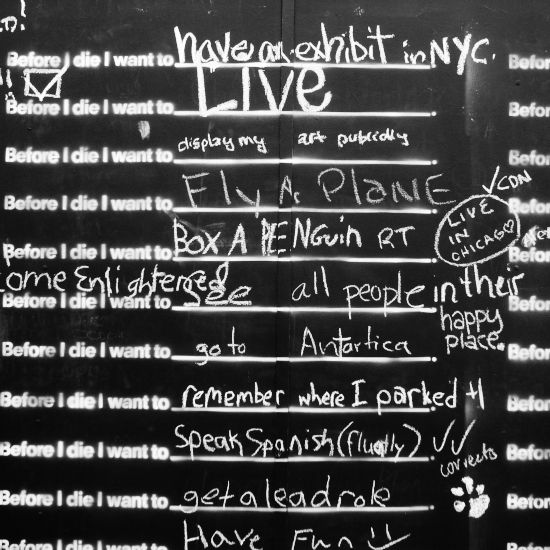 Before I die I want to have an exhibit in NYC.
Before I die I want to LIVE.
Before I die I want to display my art publicly.
Before I die I want to Fly A PLANE
CDN
Before I die I want to BOX A PENGuin RT
LIVE IN CHICAGO
ome Enlightened
Before I die I want to see all people in their happy place.
Before I die I want to go to Antartica
Before I die I want to remember where I parked +1
Before I die I want to Speak Spanish (fluently)
correcto
Before I die I want to get a lead role
Have Fun
Before
Before
Before
Before
Before
Before
Before
Before
Before
Before